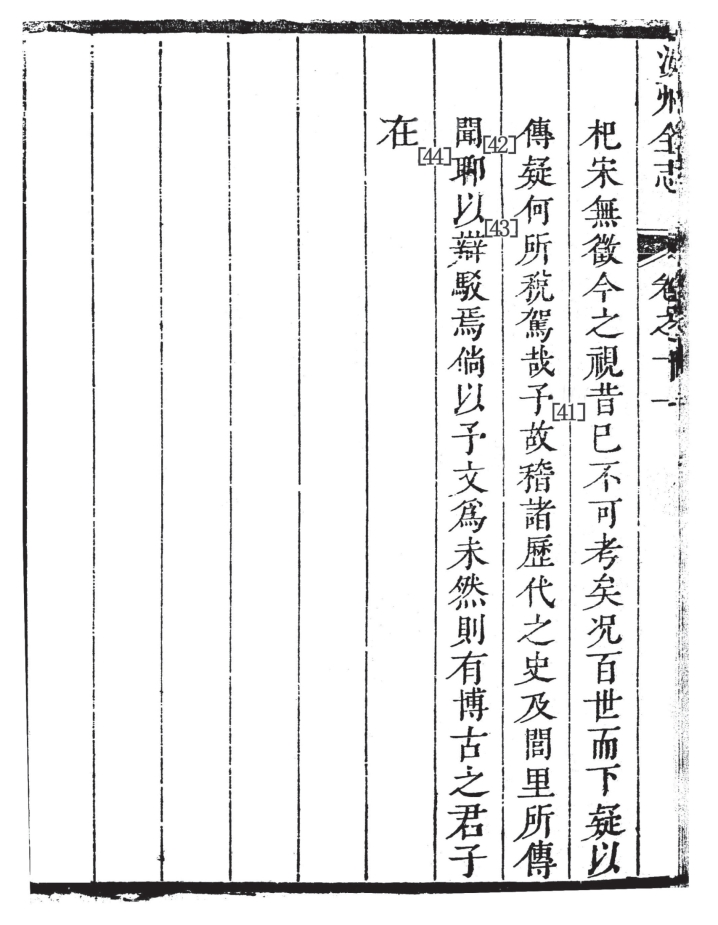 汝州全志 卷之十 一
杞宋無徵今之視昔已不可考矣况百世而下疑以
傳疑何所稅駕哉予[41]故稽諸歷代之史及閭里所傳
聞[42]聊以[43]辯駁焉倘以予文爲未然則有博古之君子
在[44]